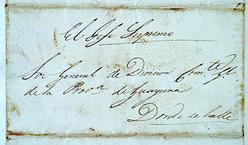 El Jefe Supremo
Sor General de Division Com.te Gl
de la Prov.a de Guayana
Donde se halle